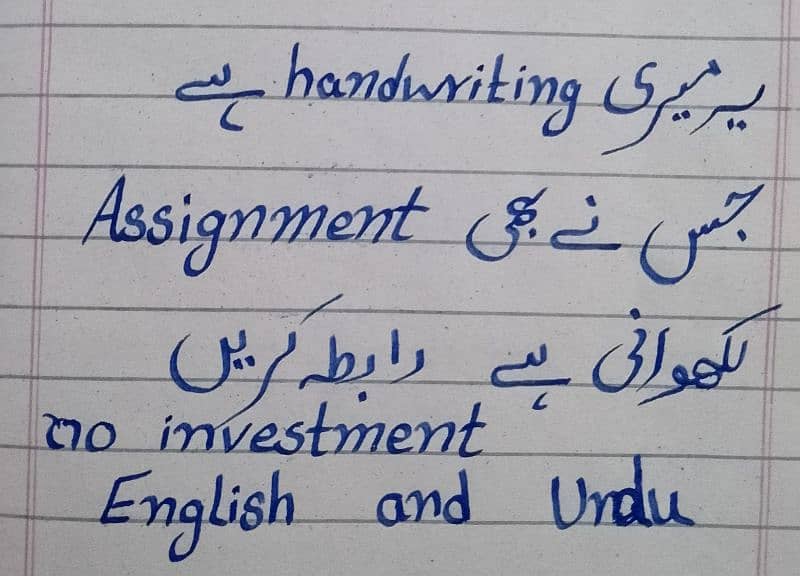 یہ میری handwriting ہے
جس نے بھی Assignment
لکھوانی ہے رابطہ کریں
no investment
English and Urdu